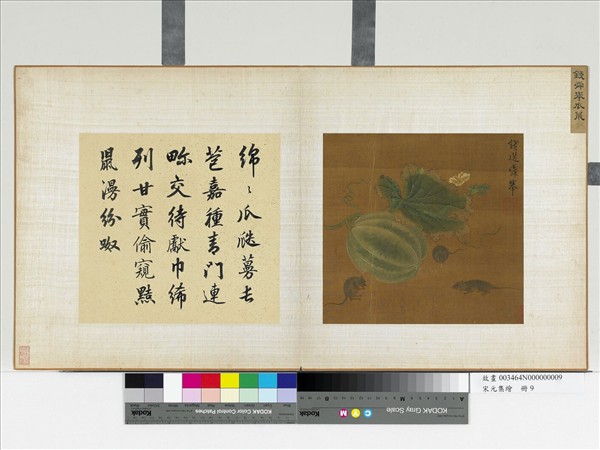 錢舜舉
錢選舜舉
綿〻瓜瓞蔓長
苞嘉種青門連
畛交待獻巾絺
列甘實偷窺黠
鼠漫紛呶
KODAK Color Control Patches
KODAK Gray Scale
故畫 003464N000000009
宋元集繪 冊 9